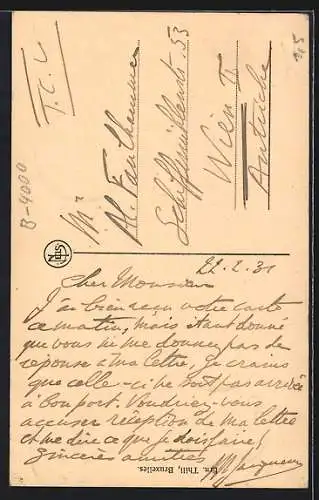 T.C.V
Mr
Al. Fauthammer
Schiffmühlenstr. 53
Wien II
Autriche
B-4000
NELS
22.2.31
Cher Monsieur
J'ai bien reçu votre carte
ce matin, mais étant donné
que vous ne me donnez pas de
réponse à ma lettre, je crains
que celle-ci ne soit pas arrivée
à bon port. Voudriez-vous
accuser réception de ma lettre
et me dire ce que je dois faire?
Sincères amitiés
Ern. Thill, Bruxelles.